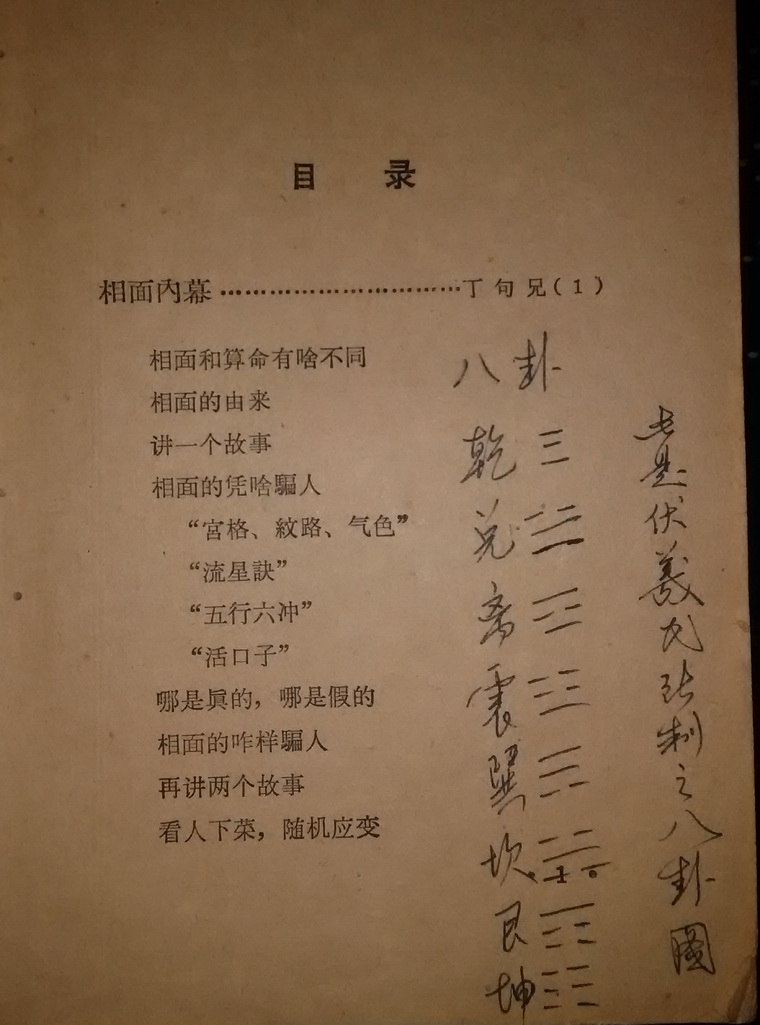 目 录
相面內幕…………………………丁句兄(1)
相面和算命有啥不同
相面的由来
讲一个故事
相面的凭啥騙人
“宮格、紋路、气色”
“流星訣”
“五行六冲”
“活口子”
哪是眞的，哪是假的
相面的咋样騙人
再讲两个故事
看人下菜，随机应变
八卦
乾 ☰
兑 ☱
离
震 ☳
巽 ☴
坎
艮 ☶
坤 ☷
是伏羲氏 制之八卦圖